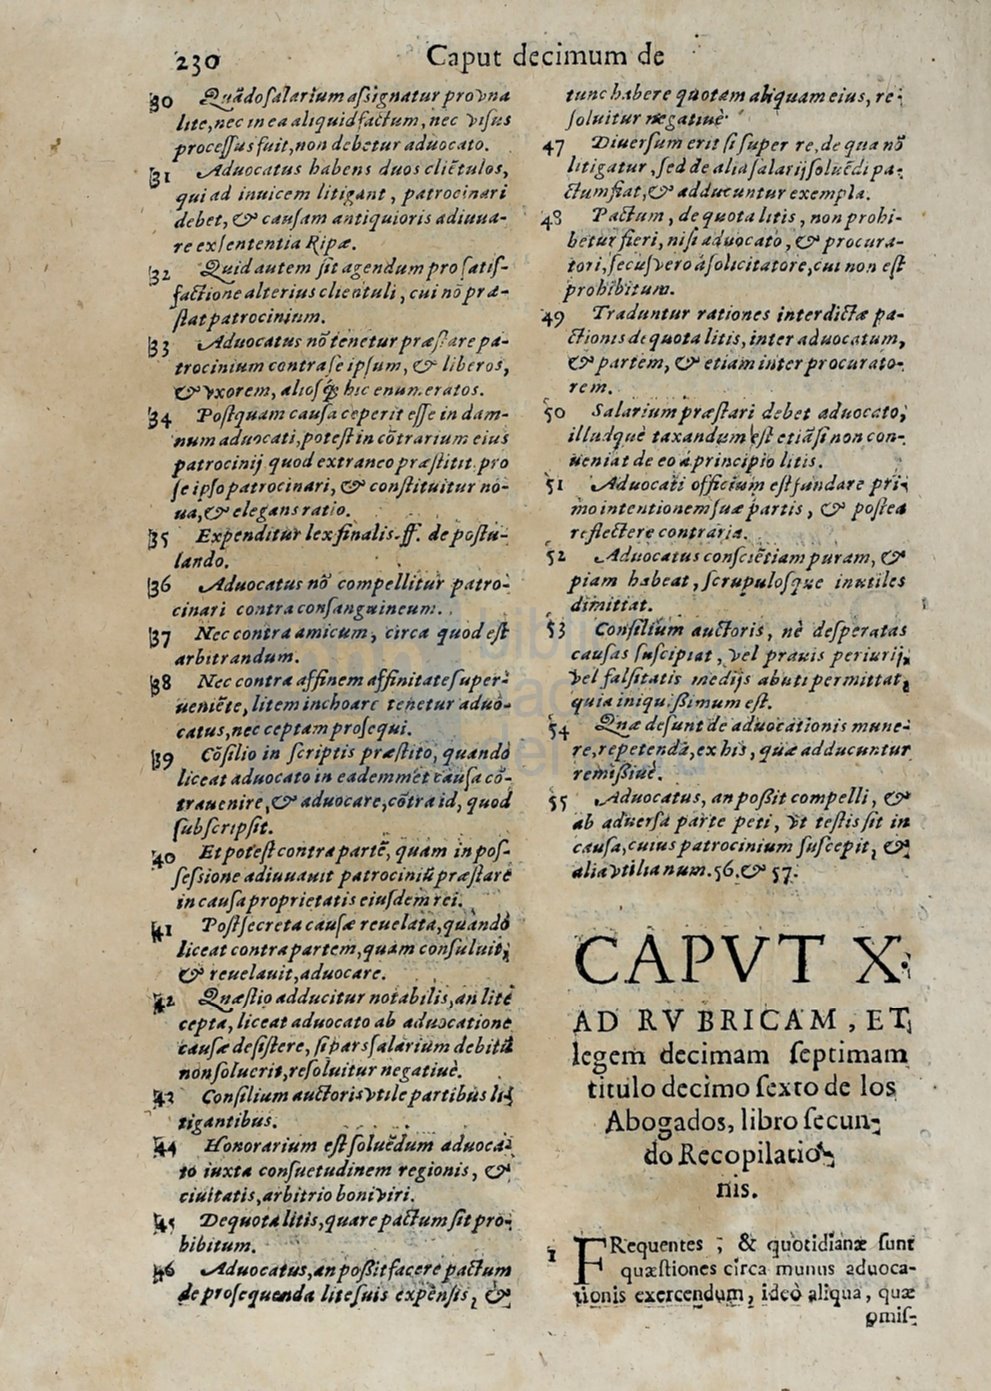 230 Caput decimum de
30 Quãdo salarium assignatur pro vna
lite, nec in ea aliquid factum, nec visus
processus fuit, non debetur aduocato.
31 Aduocatus habens duos cliẽtulos,
qui ad inuicem litigant, patrocinari
debet, & causam antiquioris adiuua-
re ex sententia Ripæ.
32 Quid autem sit agendum pro satis-
factione alterius clientuli, cui nõ præ-
stat patrocinium.
33 Aduocatus nõ tenetur præstare pa-
trocinium contra se ipsum, & liberos,
& vxorem, aliosq́; hic enumeratos.
34 Postquam causa ceperit esse in dam-
num aduocati, potest in cõtrarium eius
patrocinij quod extraneo præstitit pro
se ipso patrocinari, & constituitur no-
ua, & elegans ratio.
35 Expenditur lex finalis. ff. de postu-
lando.
36 Aduocatus nõ compellitur patro-
cinari contra consanguineum.
37 Nec contra amicum, circa quod est
arbitrandum.
38 Nec contra affinem affinitate super-
ueniẽte, litem inchoare tenetur aduo-
catus, nec ceptam prosequi.
39 Cõsilio in scriptis præstito, quando
liceat aduocato in eademmet causa cõ-
trauenire, & aduocare, cõtra id, quod
subscripsit.
40 Et potest contra partẽ, quam in pos-
sessione adiuuauit patrociniũ præstare
in causa proprietatis eiusdem rei.
41 Post secreta causæ reuelata, quando
liceat contra partem, quam consuluit,
& reuelauit, aduocare.
42 Quæstio adducitur notabilis, an lite
cepta, liceat aduocato ab aduocatione
causæ desistere, si pars salarium debitũ
non soluerit, resoluitur negatiuè.
43 Consilium auctoris vtile partibus li-
tigantibus.
44 Honorarium est soluẽdum aduoca-
to iuxta consuetudinem regionis, &
ciuitatis, arbitrio boni viri.
45 De quota litis, quare pactum sit pro-
hibitum.
46 Aduocatus, an possit facere pactum
de prosequenda lite suis expensis, &
tunc habere quotam aliquam eius, re-
soluitur negatiuè.
47 Diuersum erit si super re, de qua nõ
litigatur, sed de alia salarij soluẽdi pa-
ctum fiat, & adducuntur exempla.
48 Pactum, de quota litis, non prohi-
betur fieri, nisi aduocato, & procura-
tori, secus vero à solicitatore, cui non est
prohibitum.
49 Traduntur rationes interdictæ pa-
ctionis de quota litis, inter aduocatum,
& partem, & etiam inter procurato-
rem.
50 Salarium præstari debet aduocato,
illudquè taxandum est etiã si non con-
ueniat de eo à principio litis.
51 Aduocati officium est fundare pri-
mo intentionem suæ partis, & postea
reflectere contraria.
52 Aduocatus consciẽtiam puram, &
piam habeat, scrupulosque inutiles
dimittat.
53 Consilium auctoris, nè desperatas
causas suscipiat, vel prauis periurij,
vel falsitatis medijs abuti permittat,
quia iniquissimum est.
54 Quæ desunt de aduocationis mune-
re, repetenda, ex his, quæ adducuntur
remissiuè.
55 Aduocatus, an possit compelli, &
ab aduersa parte peti, vt testis sit in
causa, cuius patrocinium suscepit, &
alia vtilia num. 56. & 57.
CAPVT X.
AD RVBRICAM, ET
legem decimam septimam
titulo decimo sexto de los
Abogados, libro secun-
do Recopilatio-
nis.
1 FRequentes, & quotidianæ sunt
quæstiones circa munus aduoca-
tionis exercendum, ideò aliqua, quæ
omis-